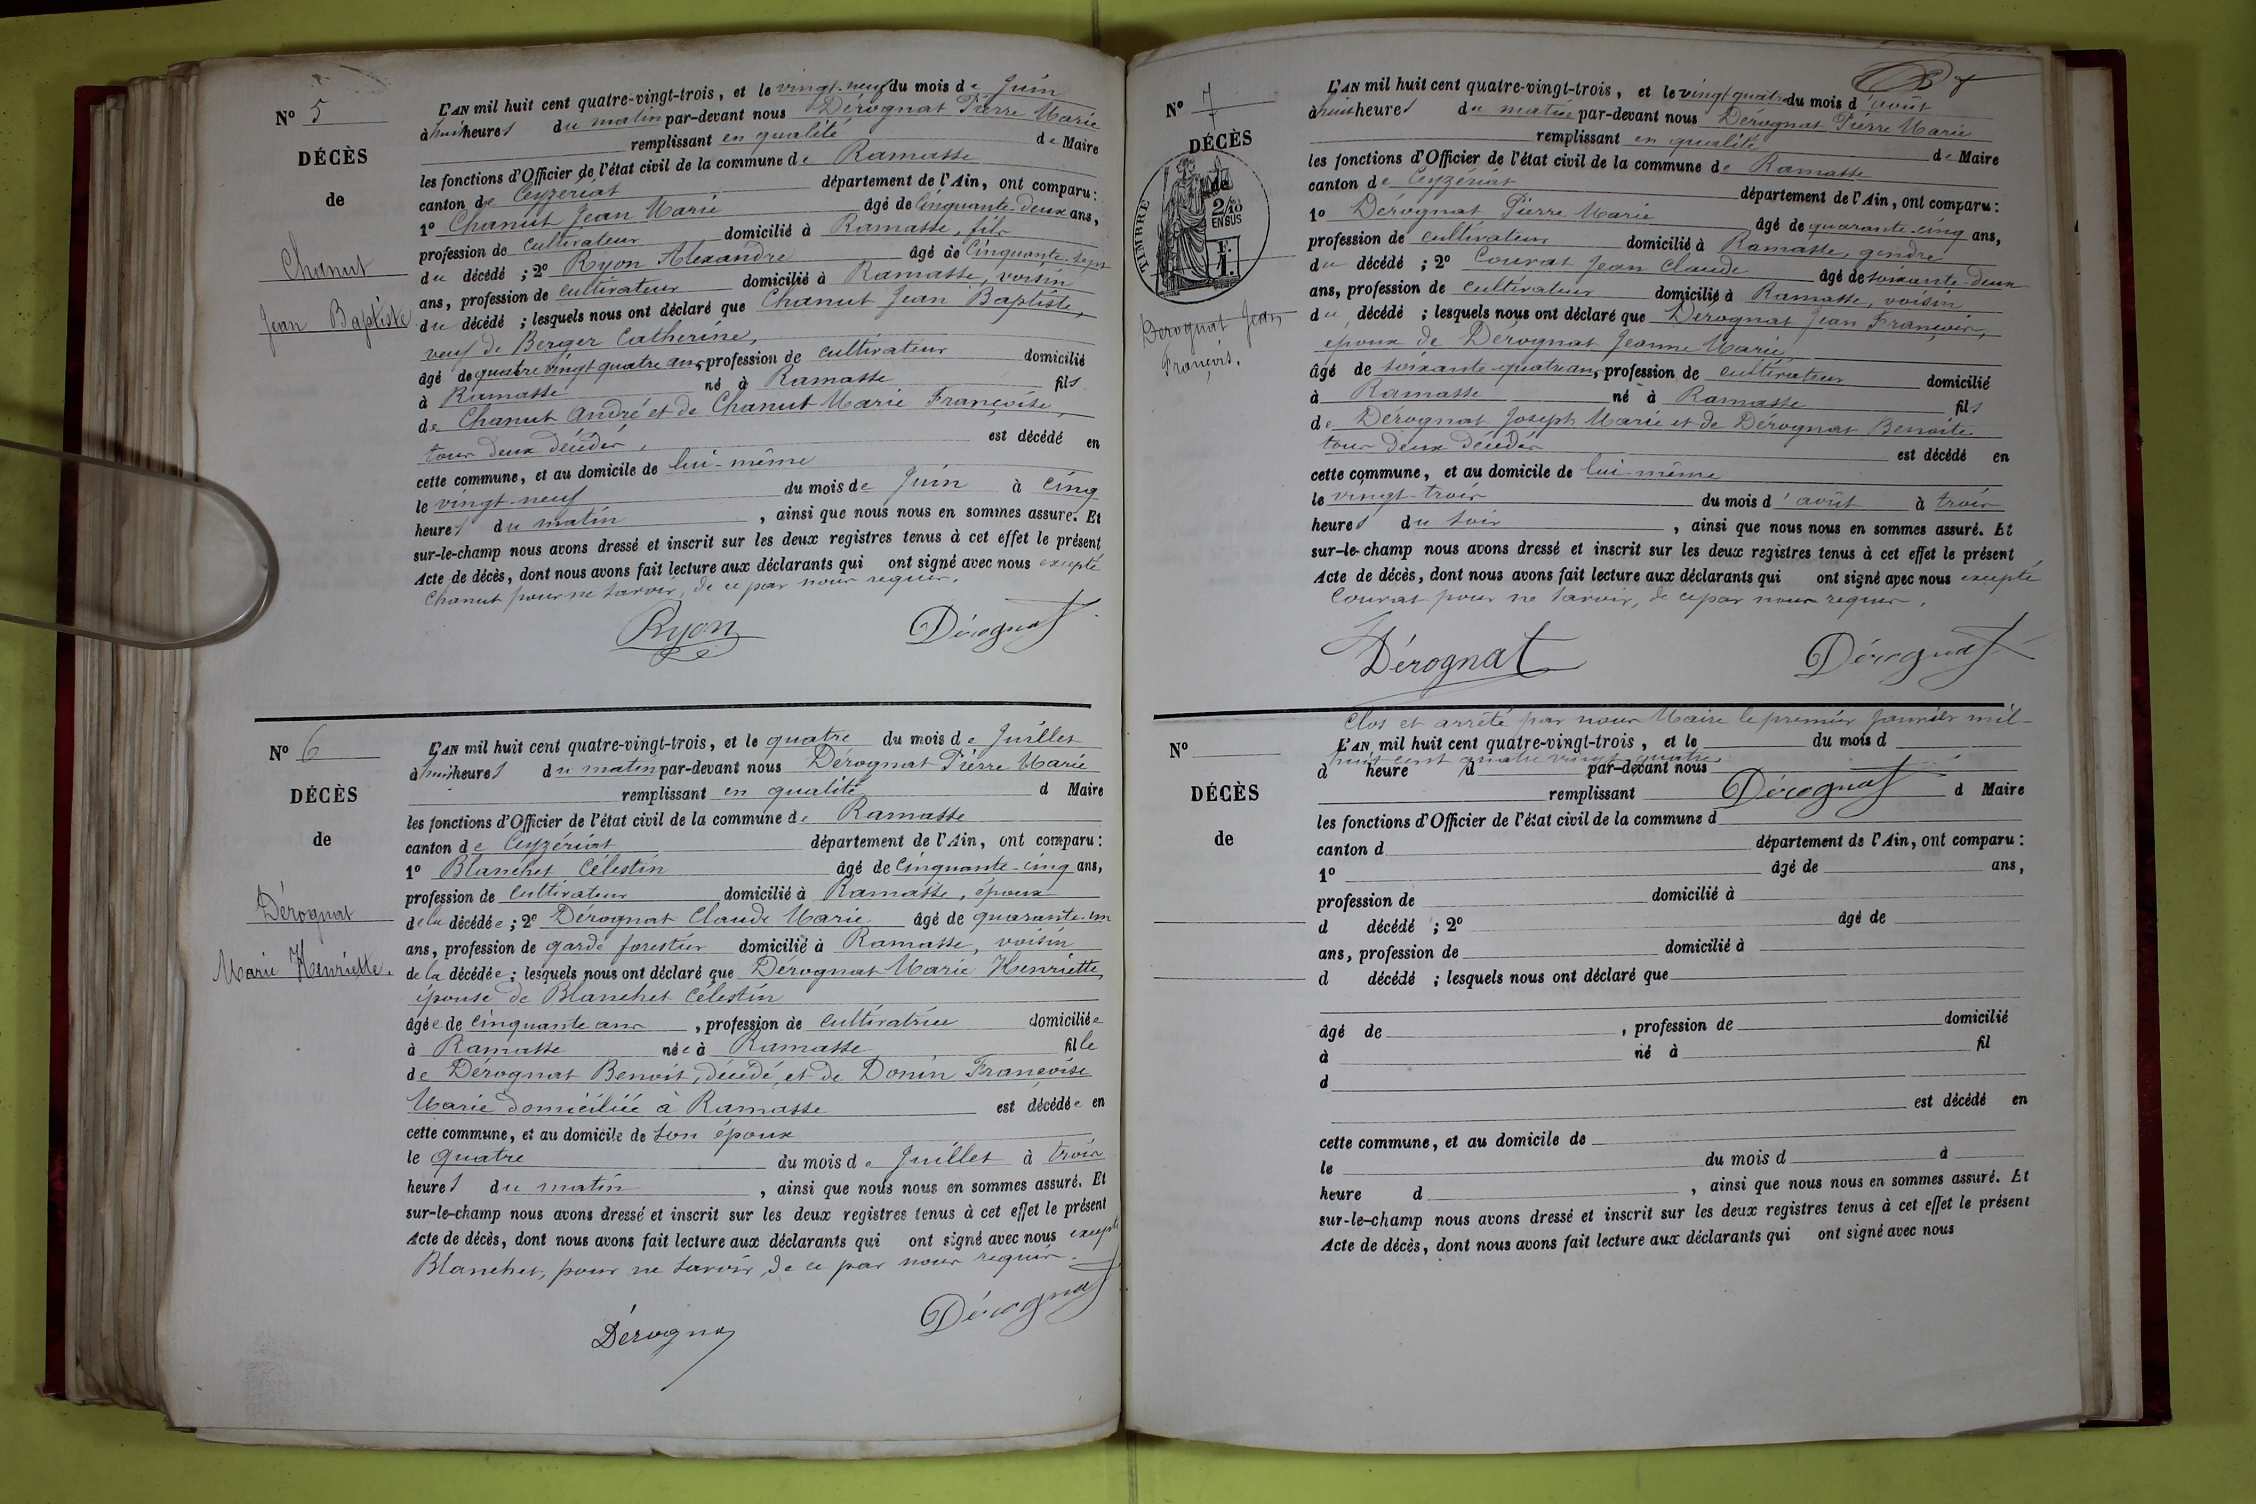 N° 5
DÉCÈS
de
Chanut
Jean Baptiste
L'AN mil huit cent quatre-vingt-trois, et le vingt-neuf du mois de Juin
à huit heures du matin par-devant nous Dérognat Pierre Marie
remplissant en qualité de Maire
les fonctions d'Officier de l'état civil de la commune de Ramasse
canton de Ceyzériat département de l'Ain, ont comparu :
1° Chanut Jean Marie âgé de Cinquante-deux ans,
profession de cultivateur domicilié à Ramasse, fils
du décédé ; 2° Ryon Alexandre âgé de Cinquante-sept
ans, profession de cultivateur domicilié à Ramasse, voisin
du décédé ; lesquels nous ont déclaré que Chanut Jean Baptiste,
veuf de Berger Catherine,
âgé de quatre vingt quatre ans, profession de cultivateur domicilié
à Ramasse né à Ramasse fils
de Chanut André et de Chanut Marie Françoise,
tous deux décédés, est décédé en
cette commune, et au domicile de lui-même
le vingt-neuf du mois de Juin à cinq
heures du matin, ainsi que nous nous en sommes assuré. Et
sur-le-champ nous avons dressé et inscrit sur les deux registres tenus à cet effet le présent
Acte de décès, dont nous avons fait lecture aux déclarants qui ont signé avec nous excepté
Chanut pour ne savoir, de ce par nous requis.
Ryon Dérognat
N° 6
DÉCÈS
de
Dérognat
Marie Henriette.
L'AN mil huit cent quatre-vingt-trois, et le quatre du mois de Juillet
à huit heures du matin par-devant nous Dérognat Pierre Marie
remplissant en qualité d Maire
les fonctions d'Officier de l'état civil de la commune de Ramasse
canton de Ceyzériat département de l'Ain, ont comparu :
1° Blanchet Célestin âgé de Cinquante-cinq ans,
profession de cultivateur domicilié à Ramasse, époux
de la décédée ; 2° Dérognat Claude Marie âgé de quarante-un
ans, profession de garde forestier domicilié à Ramasse, voisin
de la décédée ; lesquels nous ont déclaré que Dérognat Marie Henriette
épouse de Blanchet Célestin
âgée de cinquante ans, profession de cultivatrice domiciliée
à Ramasse née à Ramasse fille
de Dérognat Benoit, décédé, et de Donin Françoise
Marie domiciliée à Ramasse est décédée en
cette commune, et au domicile de son époux
le quatre du mois de Juillet à trois
heures du matin, ainsi que nous nous en sommes assuré. Et
sur-le-champ nous avons dressé et inscrit sur les deux registres tenus à cet effet le présent
Acte de décès, dont nous avons fait lecture aux déclarants qui ont signé avec nous excepté
Blanchet, pour ne savoir, de ce par nous requis.
Dérognat Dérognat
N° 7
DÉCÈS
de
TIMBRE
2/10
EN SUS
Dérognat Jean
François.
L'AN mil huit cent quatre-vingt-trois, et le vingt quatre du mois d'août
à huit heures du matin par-devant nous Dérognat Pierre Marie
remplissant en qualité de Maire
les fonctions d'Officier de l'état civil de la commune de Ramasse
canton de Ceyzériat département de l'Ain, ont comparu :
1° Dérognat Pierre Marie âgé de quarante-cinq ans,
profession de cultivateur domicilié à Ramasse, gendre
du décédé ; 2° Courat Jean Claude âgé de soixante-deux
ans, profession de cultivateur domicilié à Ramasse, voisin
du décédé ; lesquels nous ont déclaré que Dérognat Jean François,
époux de Dérognat Jeanne Marie
âgé de soixante-quatre ans, profession de cultivateur domicilié
à Ramasse né à Ramasse fils
de Dérognat Joseph Marie et de Dérognat Benoite
tous deux décédés est décédé en
cette commune, et au domicile de lui-même
le vingt-trois du mois d'août à trois
heures du soir, ainsi que nous nous en sommes assuré. Et
sur-le-champ nous avons dressé et inscrit sur les deux registres tenus à cet effet le présent
Acte de décès, dont nous avons fait lecture aux déclarants qui ont signé avec nous excepté
Courat pour ne savoir, de ce par nous requis.
Dérognat Dérognat
Clos et arrêté par nous Maire le premier Janvier mil-
huit cent quatre vingt quatre
Dérognat
N°
DÉCÈS
de
L'AN mil huit cent quatre-vingt-trois, et le du mois d
à heure d par-devant nous
remplissant d Maire
les fonctions d'Officier de l'état civil de la commune d
canton d département de l'Ain, ont comparu :
1° âgé de ans,
profession de domicilié à
d décédé ; 2° âgé de
ans, profession de domicilié à
d décédé ; lesquels nous ont déclaré que
âgé de , profession de domicilié
à né à fil
d
est décédé en
cette commune, et au domicile de
le du mois d à
heure d , ainsi que nous nous en sommes assuré. Et
sur-le-champ nous avons dressé et inscrit sur les deux registres tenus à cet effet le présent
Acte de décès, dont nous avons fait lecture aux déclarants qui ont signé avec nous